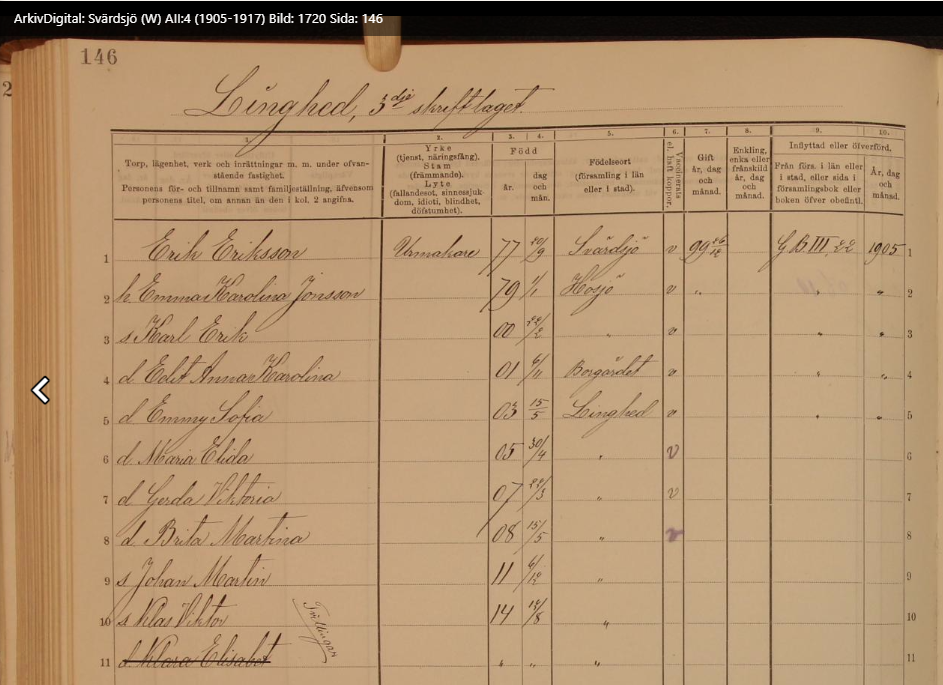 ArkivDigital: Svärdsjö (W) AII:4 (1905-1917) Bild: 1720 Sida: 146
146
2
Linghed, 3dje skriftlaget.
1. 2. 3. 4. 5. 6. 7. 8. 9. 10.
Torp, lägenhet, verk och inrättningar m. m. under ofvan-
stående fastighet.
Personens för- och tillnamn samt familjeställning, äfvensom
personens titel, om annan än den i kol. 2 angifna.
Yrke
(tjenst, näringsfång).
Stam
(främmande).
Lyte
(fallandesot, sinnessjuk-
dom, idioti, blindhet,
döfstumhet).
Född
år.
dag
och
mån.
Födelseort
(församling i län
eller i stad).
Vaccinerats
el. haft koppor.
Gift
år, dag
och
månad.
Enkling,
enka eller
frånskild
år, dag
och
månad.
Inflyttad eller öfverförd,
Från förs. i län eller
i stad, eller sida i
församlingsbok eller
boken öfver obefintl.
År, dag
och
månad.
1 Erik Eriksson Urmakare 77 20/9 Svärdsjö v 99 26/12 G B III, 22 1905 1
2 h. Emma Karolina Jonsson 79 1/1 Hosjö v " " " 2
3 s. Karl Erik 00 22/2 " v " " 3
4 d. Edit Anna Karolina 01 6/11 Borgärdet v " " 4
5 d. Emmy Sofia 03 15/5 Linghed v " " 5
6 d. Maria Elida 05 30/4 " v 6
7 d. Gerda Viktoria 07 22/3 " v 7
8 d. Brita Martina 08 15/5 " v 8
9 s. Johan Martin 11 6/12 " 9
10 s. Klas Viktor 14 12/8 " 10
Tvillingar
11 d. Klara Elisabet " " " 11